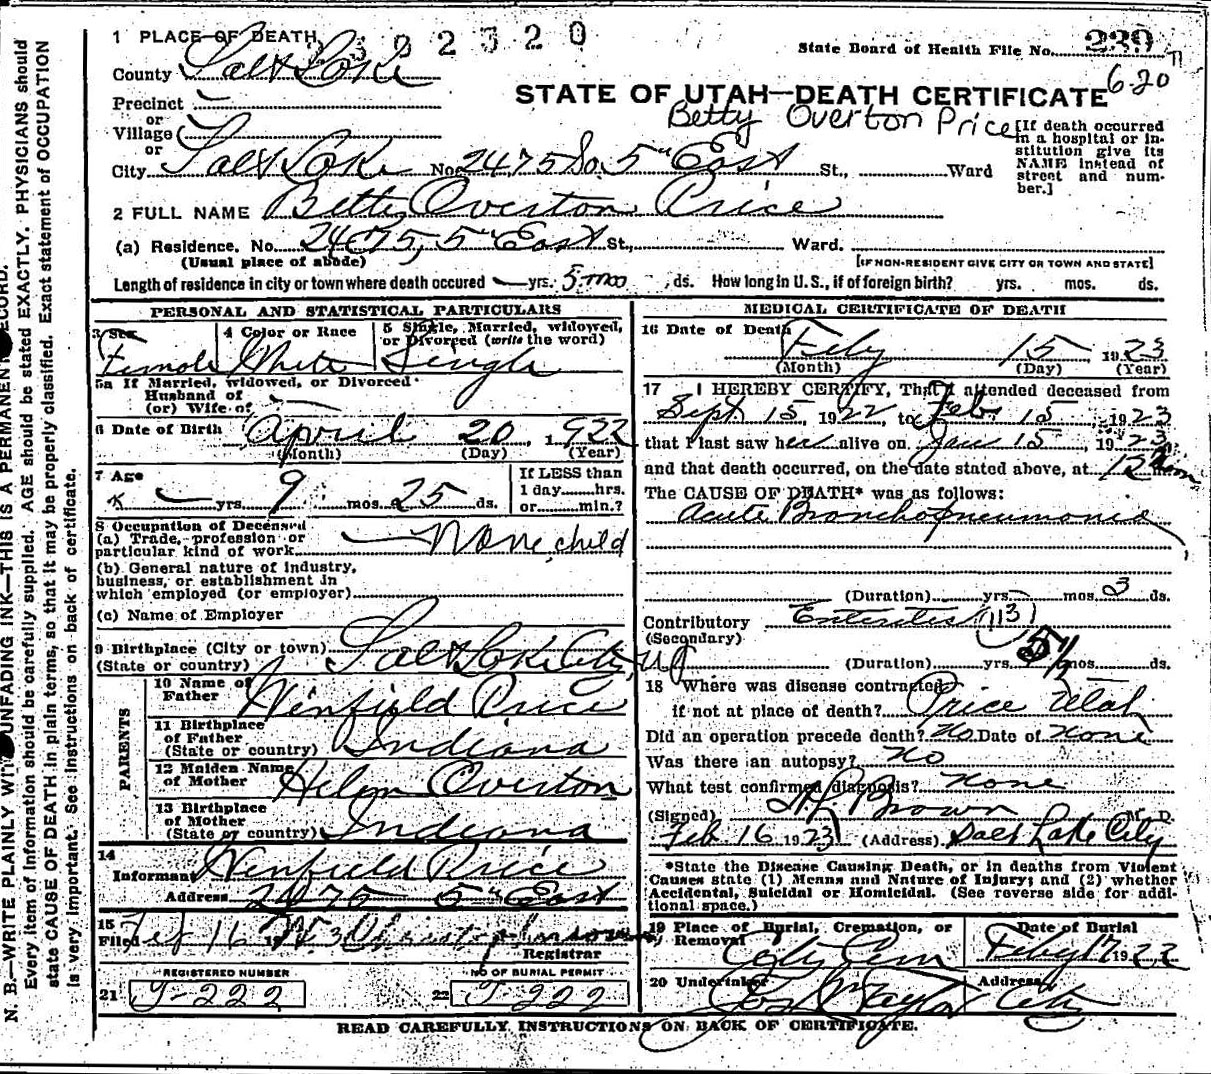 1 PLACE OF DEARTH 2320
State Board of Health File No. 239
County Salt Lake
6-20
STATE OF UTAH—DEATH CERTIFICATE
Precinct
or
Betty Overton Price
Village
or
[If death occurred in a hospital or institution give its NAME instead of street and number.]
City Salt Lake No. 2475 So. 5th East St., Ward
2 FULL NAME Betty Overton Price
(a) Residence. No. 2475, 5th East St., Ward.
(Usual place of abode) [IF NON-RESIDENT GIVE CITY OR TOWN AND STATE]
Length of residence in city or town where death occured — yrs. 5 mos ds. How long in U.S., if of foreign birth? yrs. mos. ds.
PERSONAL AND STATISTICAL PARTICULARS
3 Sex 4 Color or Race 5 Single, Married, widowed, or Divorced (write the word)
Female White Single
5a If Married, widowed, or Divorced
Husband of
(or) Wife of —
6 Date of Birth April 20, 1922
(Month) (Day) (Year)
7 Age
— yrs. 9 mos. 25 ds.
If LESS than
1 day......hrs.
or......min.?
8 Occupation of Deceased
(a) Trade, profession or
particular kind of work None child
(b) General nature of industry,
business, or establishment in
which employed (or employer)
(c) Name of Employer
9 Birthplace (City or town) Salt Lake City
(State or country) Ut
PARENTS
10 Name of Father Winfield Price
11 Birthplace of Father (State or country) Indiana
12 Maiden Name of Mother Helen Overton
13 Birthplace of Mother (State or country) Indiana
14
Informant Winfield Price
Address 2475 5th East
15
Filed Feb 16 1923
Registrar
REGISTERED NUMBER NO OF BURIAL PERMIT
21 J-222 22 J-222
MEDICAL CERTIFICATE OF DEATH
16 Date of Death Feby 15, 1923
(Month) (Day) (Year)
17 I HEREBY CERTIFY, That I attended deceased from
Sept 15, 1922, to Feb. 15, 1923
that I last saw her alive on Jan 15, 1923
and that death occurred, on the date stated above, at 12
The CAUSE OF DEATH* was as follows:
Acute Bronchopneumonia
(Duration) yrs. mos. 3 ds.
Contributory Enteritis (113)
(Secondary)
(Duration) yrs. 5½ mos. ds.
18 Where was disease contracted
if not at place of death? Price Utah
Did an operation precede death? No. Date of None
Was there an autopsy? No
What test confirmed diagnosis? None
(Signed) Brown M. D.
Feb 16 1923 (Address) Salt Lake City
*State the Disease Causing Death, or in deaths from Violent
Causes state (1) Means and Nature of Injury; and (2) whether
Accidental, Suicidal or Homicidal. (See reverse side for additional space.)
19 Place of Burial, Cremation, or Removal Date of Burial
City Cem Feby 17 1922
20 Undertaker Address
Jos Wm Taylor City
READ CAREFULLY INSTRUCTIONS ON BACK OF CERTIFICATE.
N. B.—WRITE PLAINLY WITH UNFADING INK—THIS IS A PERMANENT RECORD.
Every item of information should be carefully supplied. AGE should be stated EXACTLY. PHYSICIANS should
state CAUSE OF DEATH in plain terms, so that it may be properly classified. Exact statement of OCCUPATION
is very important. See instructions on back of certificate.